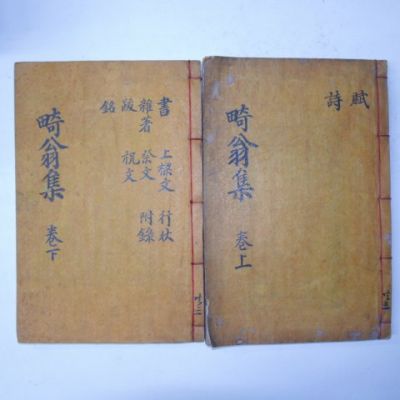 賦
詩
畸翁集 卷上
書 上樑文 行狀
雜著 祭文 附錄
跋 祝文
銘
畸翁集 卷下